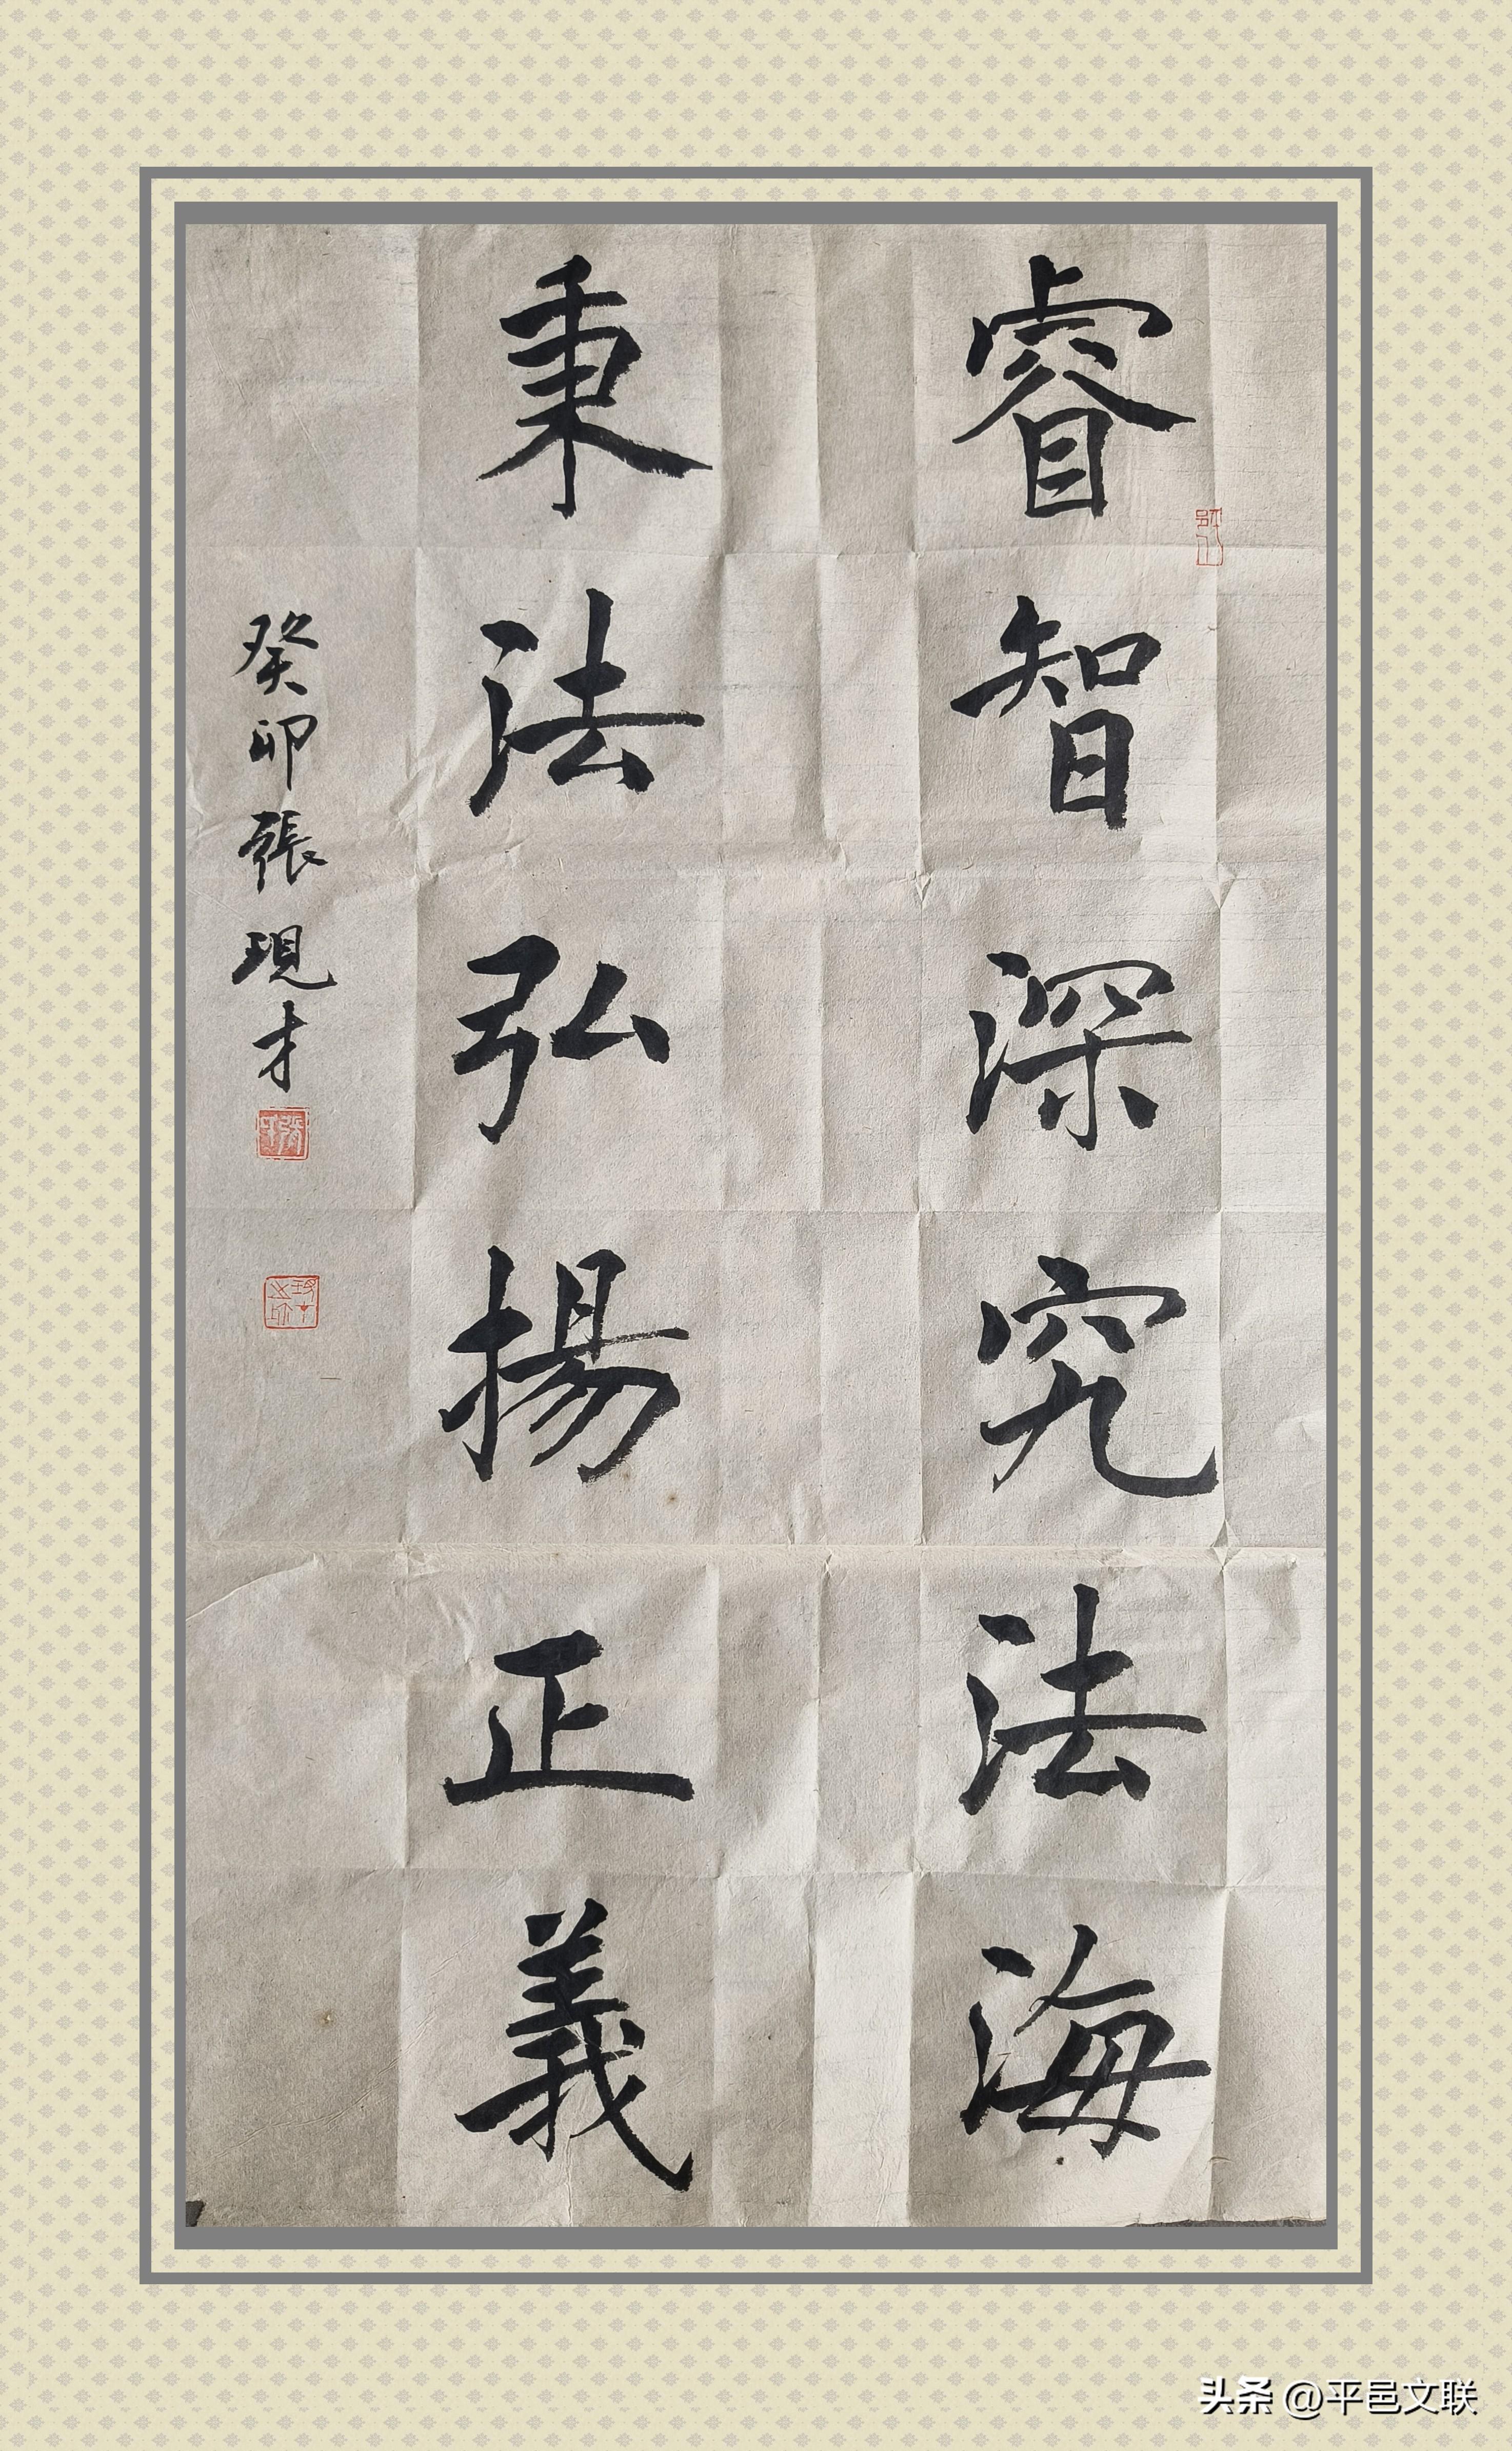 睿智深究法海
秉法弘揚正義
癸卯張現才
头条 @平邑文联